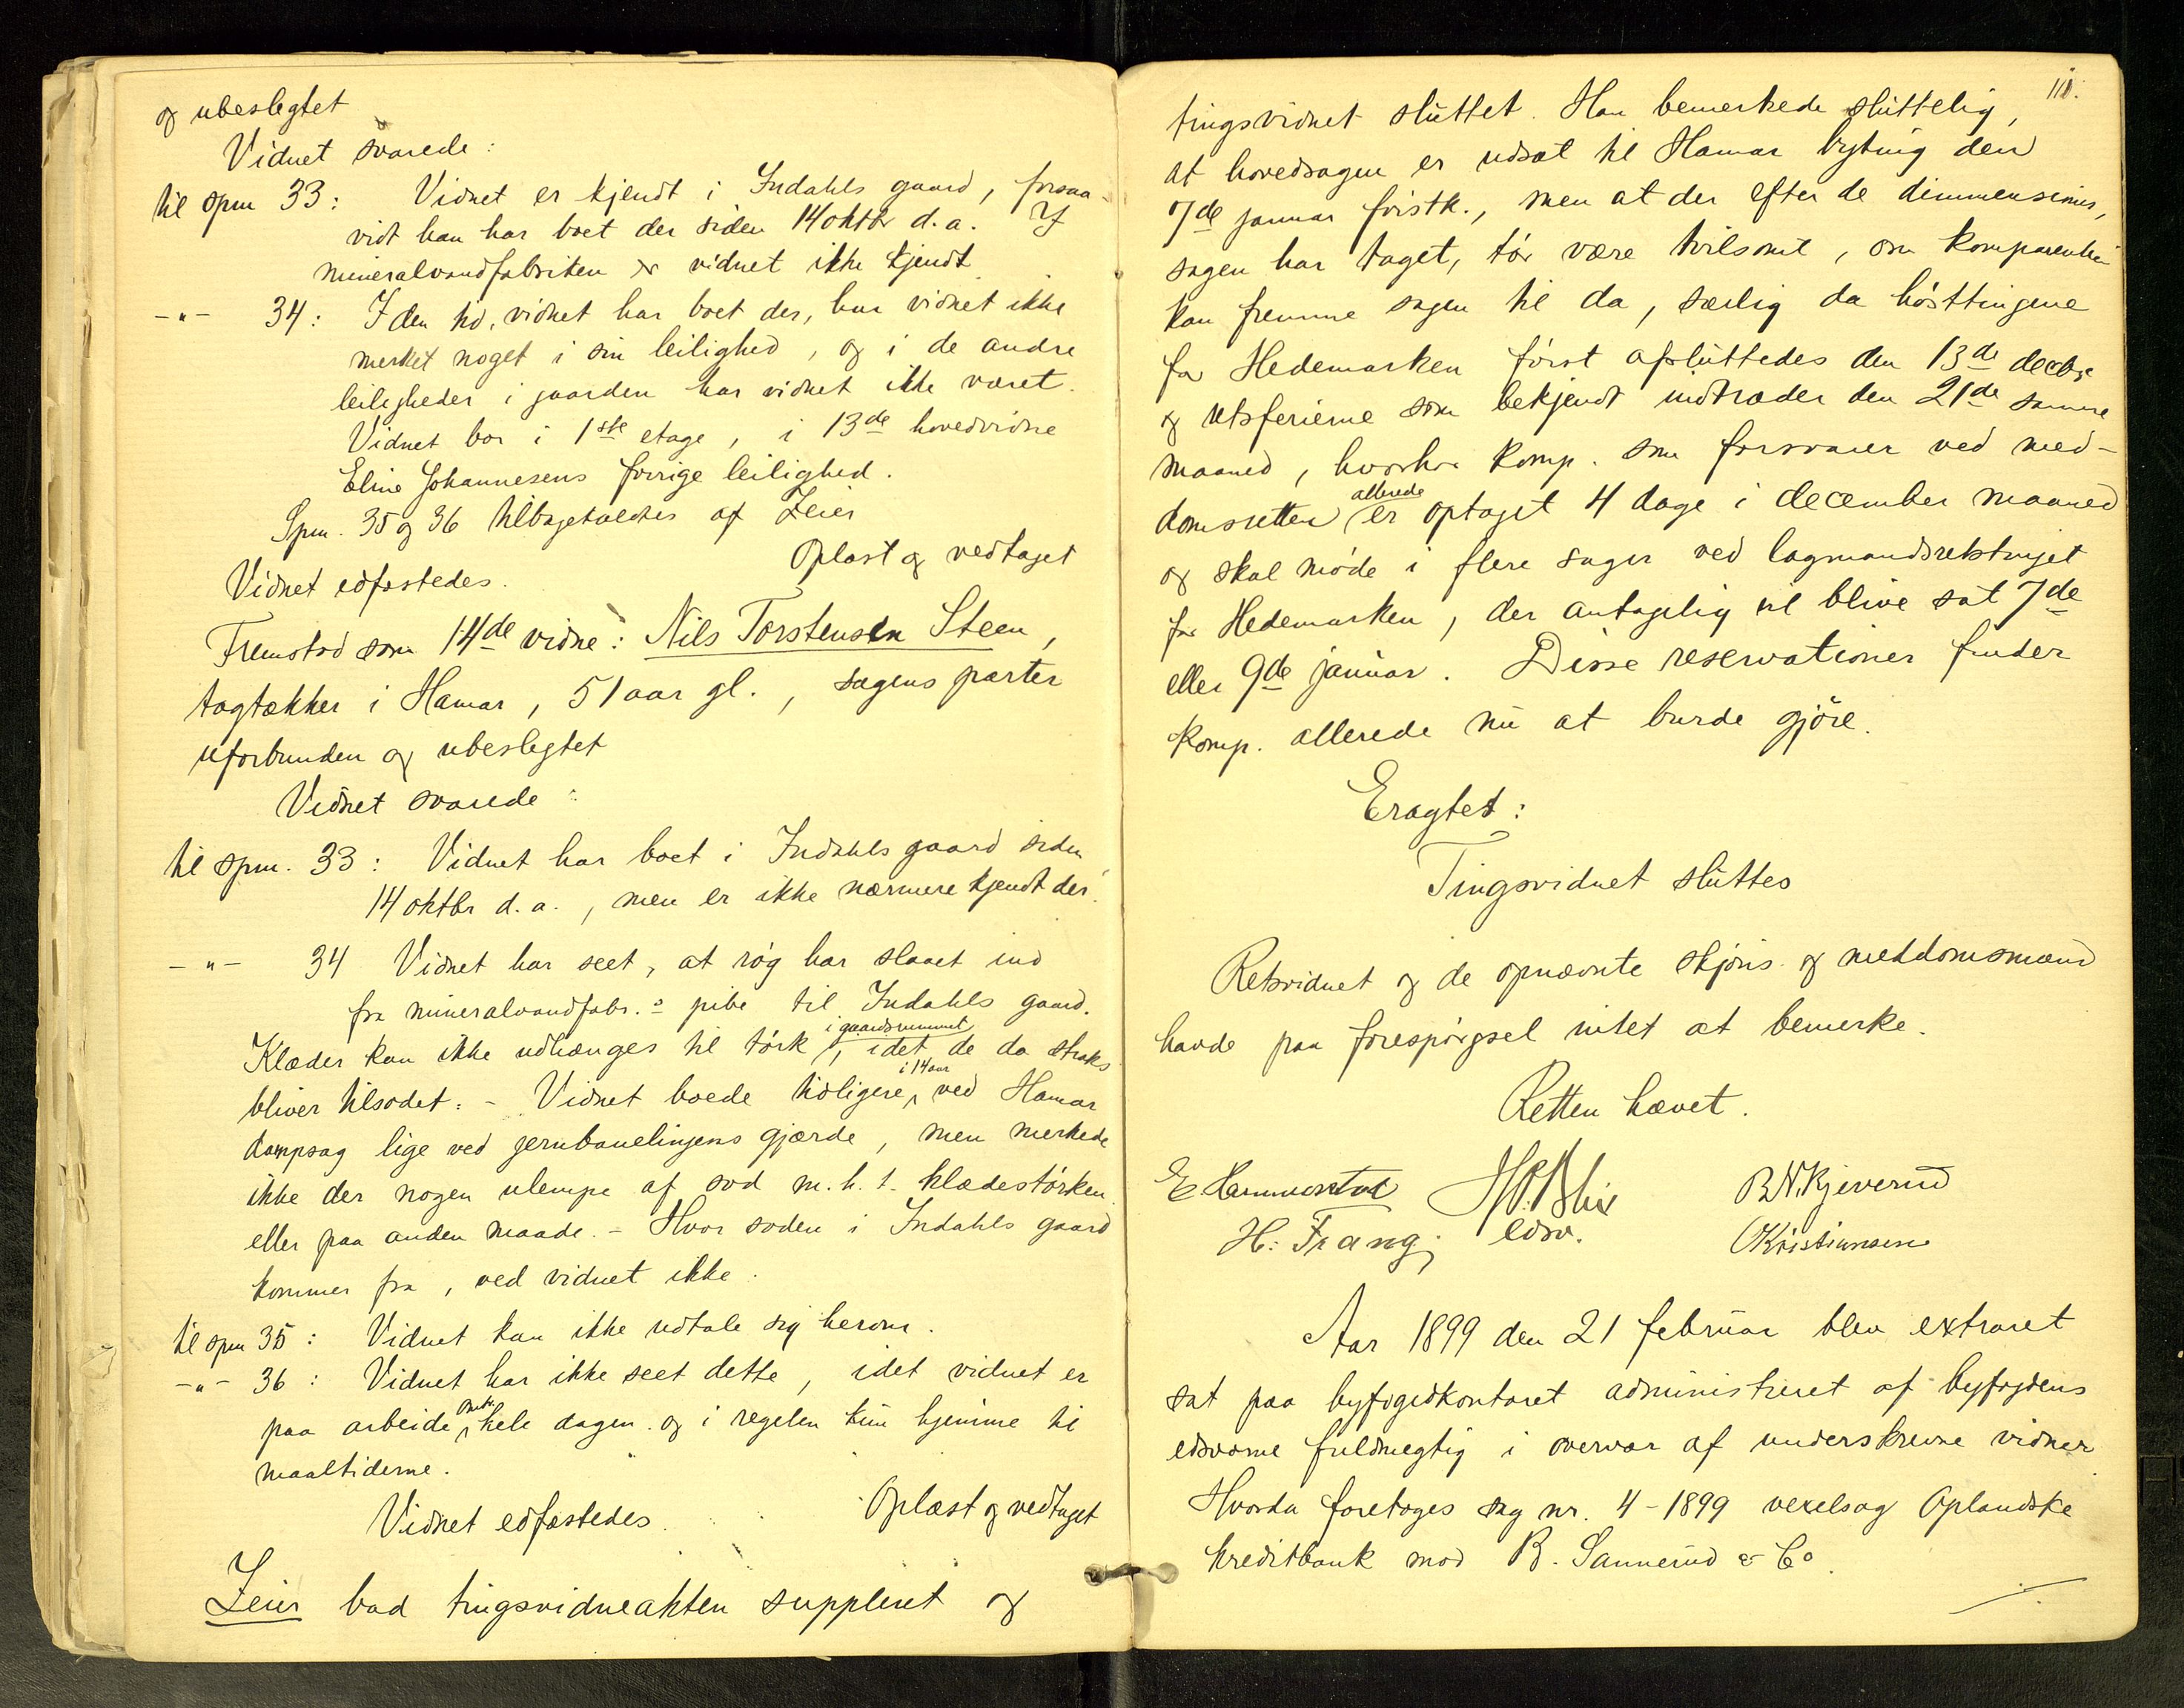 og ubeslegtet
Vidnet svarede:
til spm 33: Vidnet er kjendt i Indahls gaard, forsaa-
vidt han har boet der siden 14 oktbr d.a. I
mineralvandfabriken er vidnet ikke kjendt
-"- 34: I den tid, vidnet har boet der, har vidnet ikke
merket noget i sin leilighed, og i de andre
leiligheder i gaarden har vidnet ikke været.
Vidnet bor i 1ste etage, i 13de hovedvidne
Eline Johannesens forrige leilighed.
Spm. 35 og 36 tilbagekaldtes af Zeier
Oplæst og vedtaget
Vidnet edfæstedes.
Fremstod som 14de vidne: Nils Torstensen Steen,
tagtækker i Hamar, 51 aar gl., sagens parter
uforbunden og ubeslegtet
Vidnet svarede:
til spm. 33: Vidnet har boet i Indahls gaard siden
14 oktbr d.a., men er ikke nærmere kjendt der.
-"- 34 Vidnet har seet, at røg har slaaet ind
fra mineralvandfabr.s pibe til Indahls gaard.
Klæder kan ikke udhænges til tørk i gaardsrummet, idet de da straks
bliver tilsodet. - Vidnet boede tidligere i 14 aar ved Hamar
dampsag lige ved jernbanelinjens gjærde, men merkede
ikke der nogen ulempe af sod m.h.t. klædestørken
eller paa anden maade. - Hvor soden i Indahls gaard
kommer fra, ved vidnet ikke.
til spm 35: Vidnet kan ikke udtale sig herom.
-"- 36: Vidnet har ikke seet dette, idet vidnet er
paa arbeide hele dagen og i regelen kun hjemme til
maaltiderne.
Vidnet edfæstedes. Oplæst og vedtaget
Zeier bad tingsvidneakten suppleret og
110.
tingsvidnet sluttet. Han bemerkede sluttelig,
at hovedsagen er udsat til Hamar byting den
7de januar førstk., men at der efter de dimmensioner,
sagen har taget, tør være tvilsomt, om komparenten
kan fremme sagen til da, særlig da høsttingene
for Hedemarken først afsluttedes den 13de decbr.
og retsferierne som bekjendt indtræder den 21de samme
maaned, hvorhos komp. som forsvarer ved med-
domsretten allerede er optaget 4 dage i december maaned
og skal møde i flere sager ved lagmandsretstinget
for Hedemarken, der antagelig vil blive sat 7de
eller 9de januar. Disse reservationer finder
komp. allerede nu at burde gjøre.
Eragtet:
Tingsvidnet sluttes
Retsvidnet og de opnævnte skjøns- og meddomsmænd
havde paa forespørgsel intet at bemerke.
Retten hævet.
E Hammerstad H.P. Blix B N. Kjeverud
H: Frang edsv. O Kristiansen
Aar 1899 den 21 februar blev extraret
sat paa byfogedkontoret administreret af byfogdens
edsvorne fuldmegtig i overvær af underskrevne vidner
Hvorda foretoges sag nr. 4-1899 vexelsag Oplandske
kreditbank mod B. Sannerud & Co.